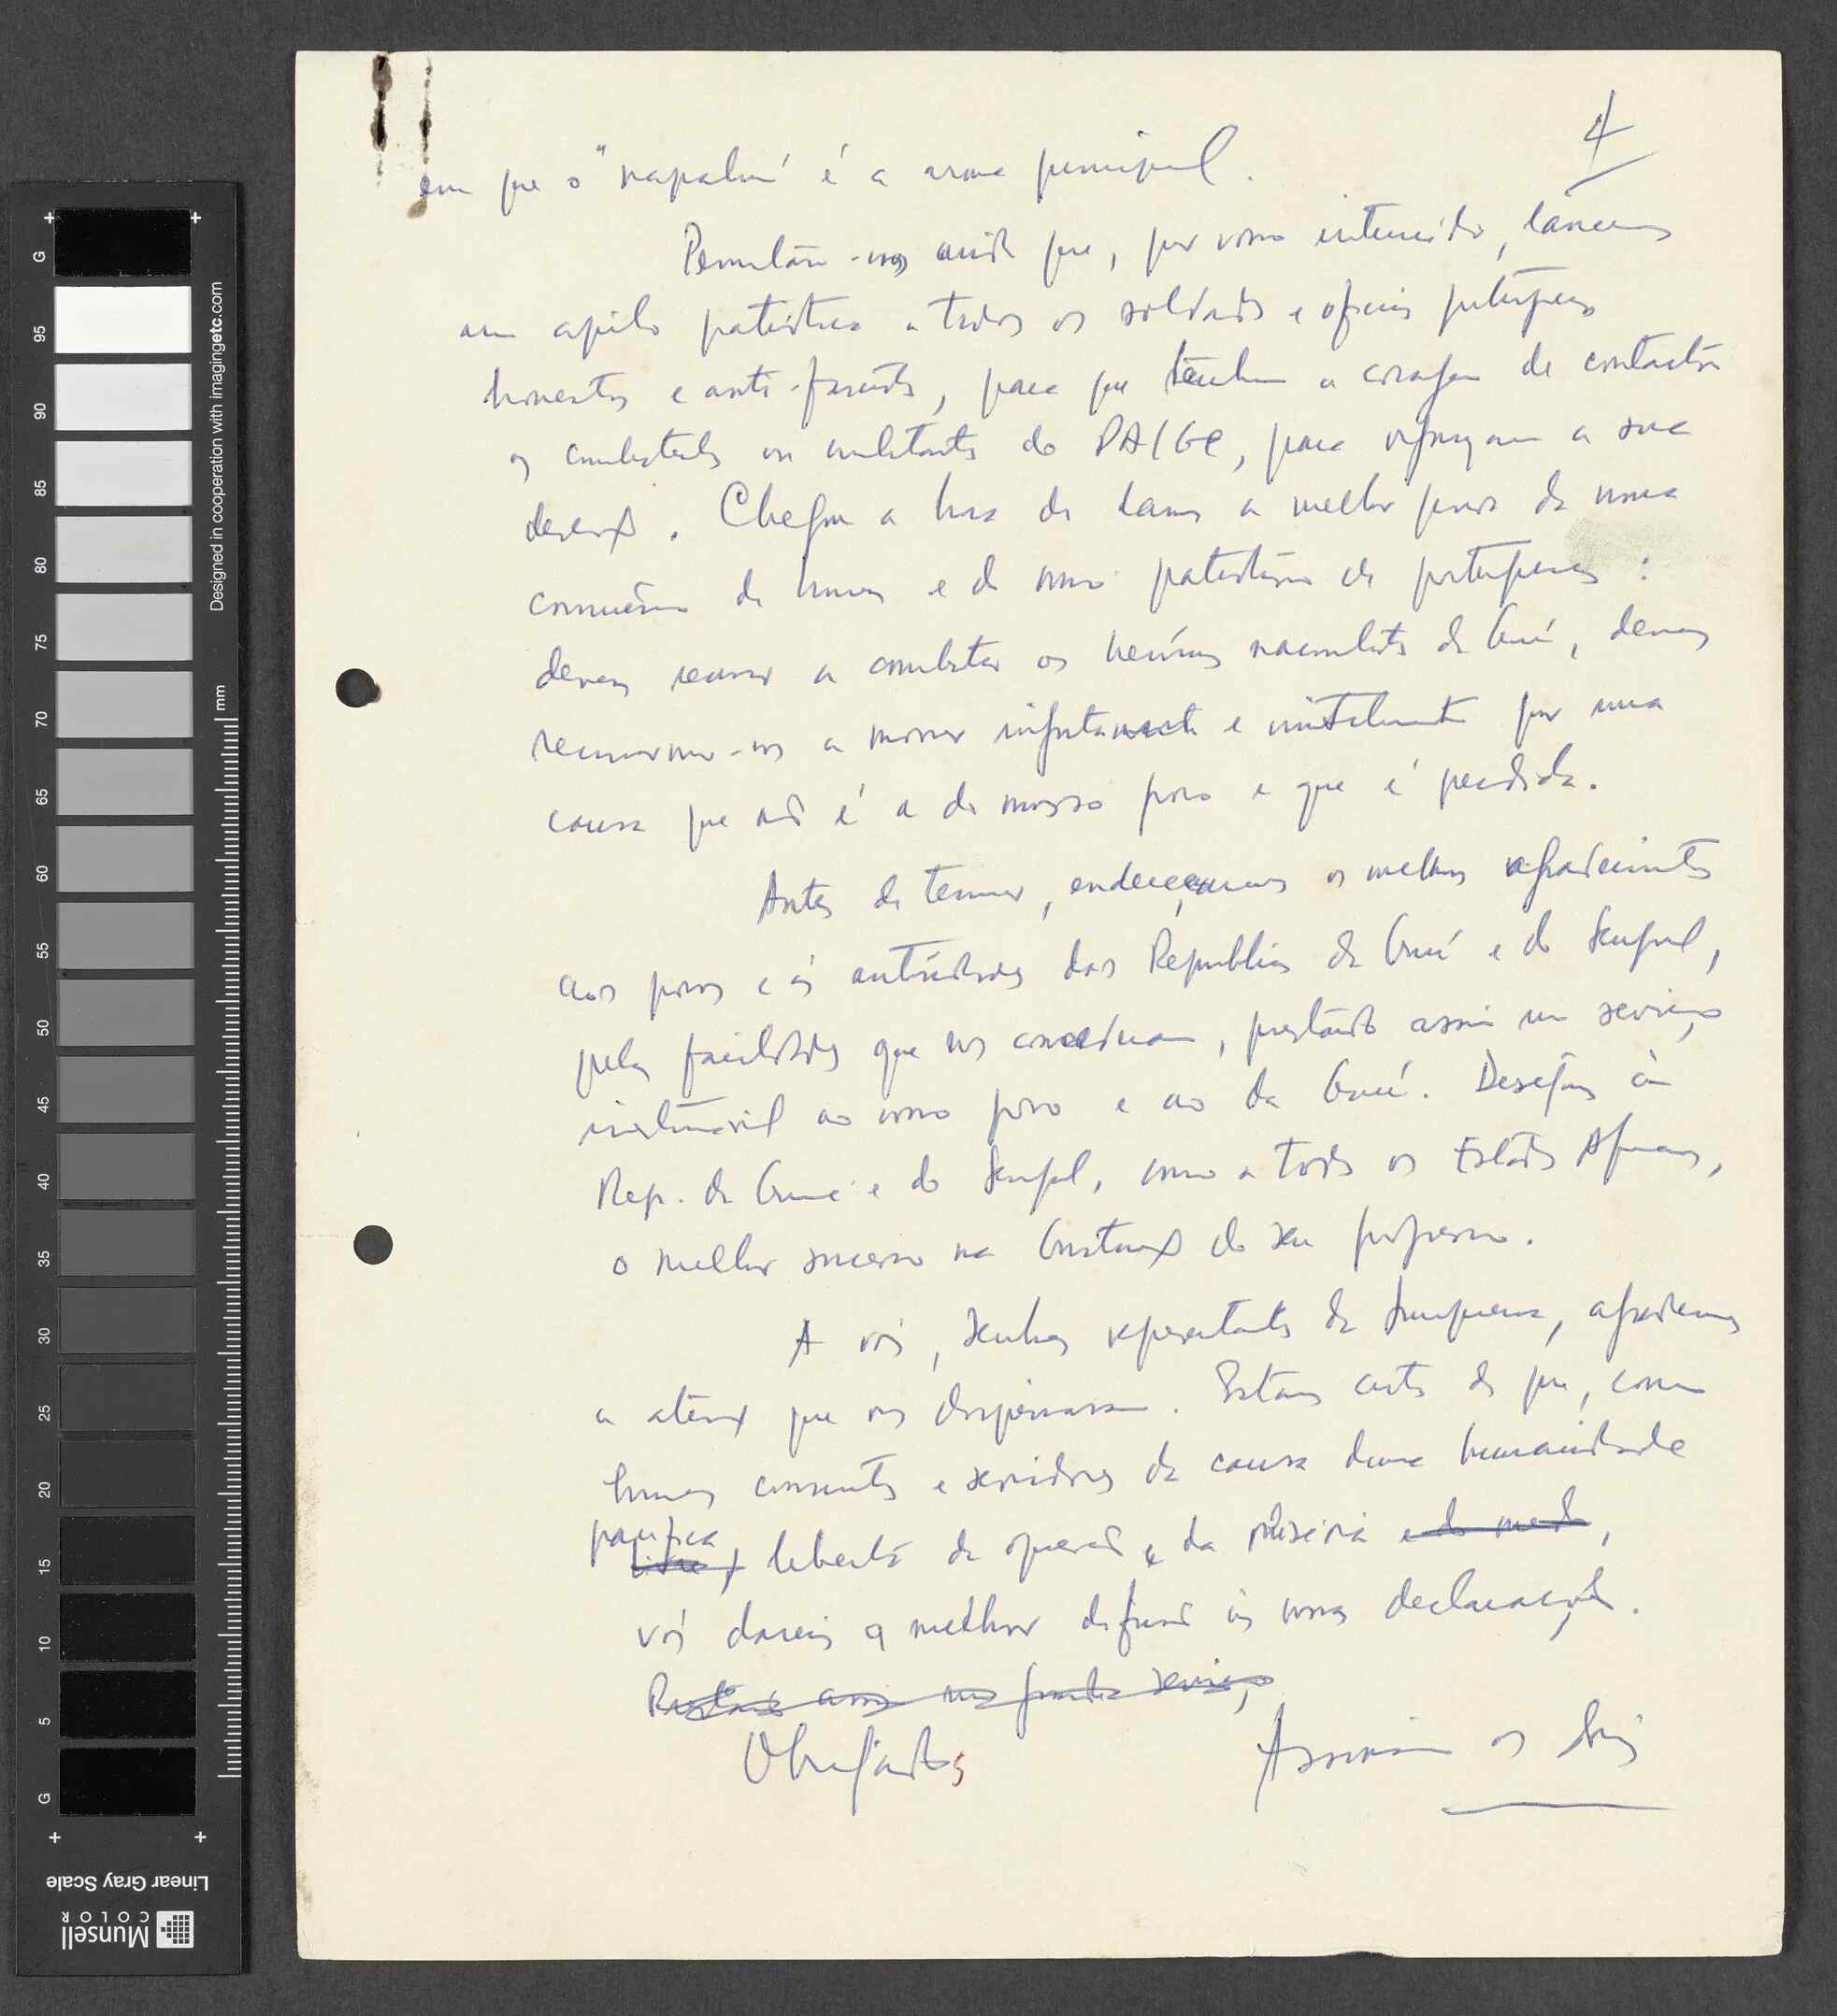 4
em que o "napalm" é a arma principal.
Permitam-nos ainda que, por vosso intermédio, lancemos
um apelo patriótico a todos os soldados e oficiais portugueses
honestos e anti-fascistas, para que tenham a coragem de contactar
os combatentes ou militantes do PAIGC, para
deserção. Chegou a hora de darmos a melhor prova da nossa
consciência de homens e do nosso patriotismo de portugueses:
devemos recusar a combater os heróicos nacionalistas da Guiné, devemos
recusarmo-nos a morrer e inutilmente por uma
causa que não é a do nosso povo e que é perdida.
Antes de terminar, endereçamos os melhores agradecimentos
aos povos e às autoridades das Repúblicas da Guiné e do Senegal,
pelas facilidades que nos concederam, prestando assim um serviço
inestimável ao nosso povo e ao da Guiné. Desejamos às
Rep. da Guiné e do Senegal, como a todos os Estados Africanos,
o melhor sucesso na construção do seu progresso.
A vós, senhores representantes da Imprensa, agradecemos
a atenção que nos dispensaram. Estamos certos de que, como
homens conscientes e servidores da causa duma humanidade
pacífica
livre, liberta da opressão e da miséria e do medo,
vós dareis a melhor difusão às nossas declarações.
Prestareis assim um grande serviço
Obrigados
Assinam os três
Designed in cooperation with imagingetc.com
mm
G
95
90
85
80
75
70
65
60
55
50
45
40
35
30
25
20
15
10
5
G
Linear Gray Scale
Munsell
COLOR